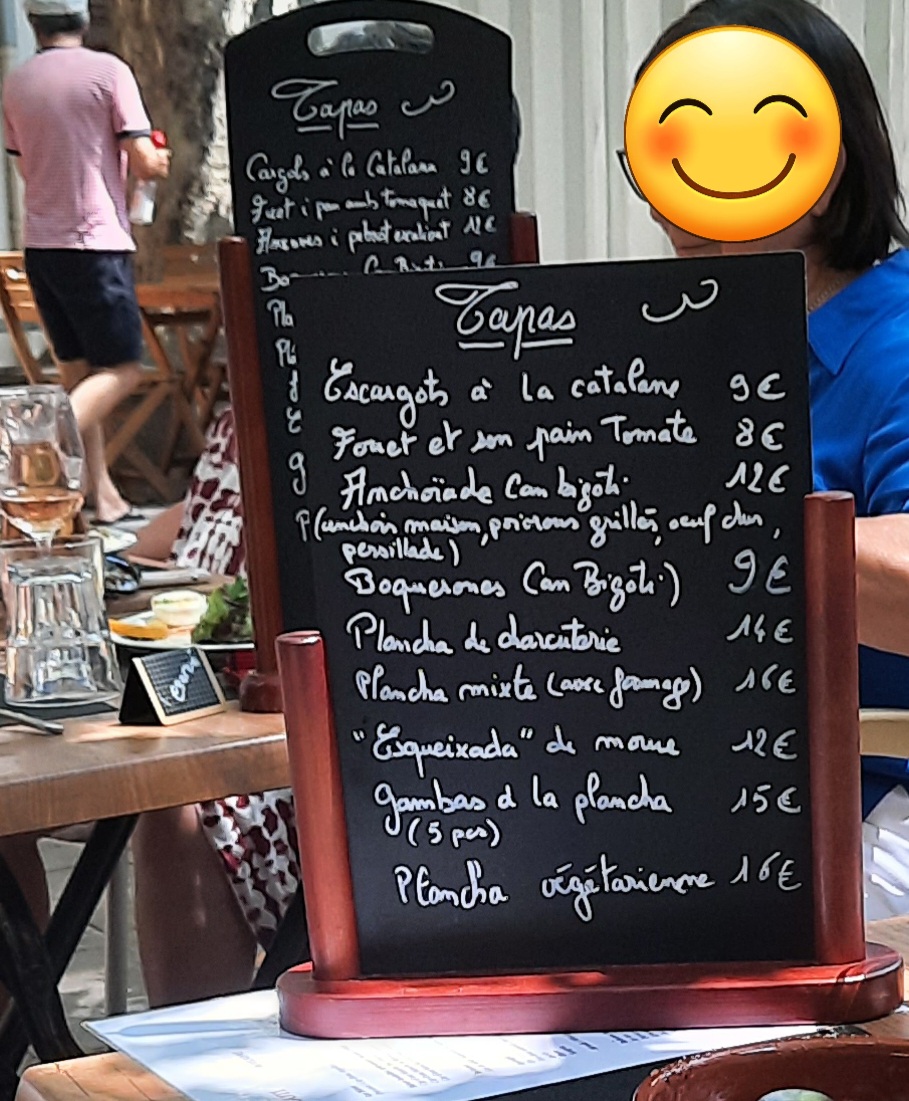 Tapas
Cargols à la Catalana 9€
Fuet i pan amb tomaquet 8€
i pebrot escalivat 12€
Tapas
Escargots à la catalane 9€
Fouet et son pain Tomate 8€
Anchoïade Can bigoti 12€
(anchois maison, poivrons grillés, oeuf dur,
persillade)
Boquerones Can Bigoti) 9€
Plancha de charcuterie 14€
Plancha mixte (avec fromage) 16€
"Esqueixada" de morue 12€
gambas à la plancha 15€
(5 pcs)
Plancha végétarienne 16€